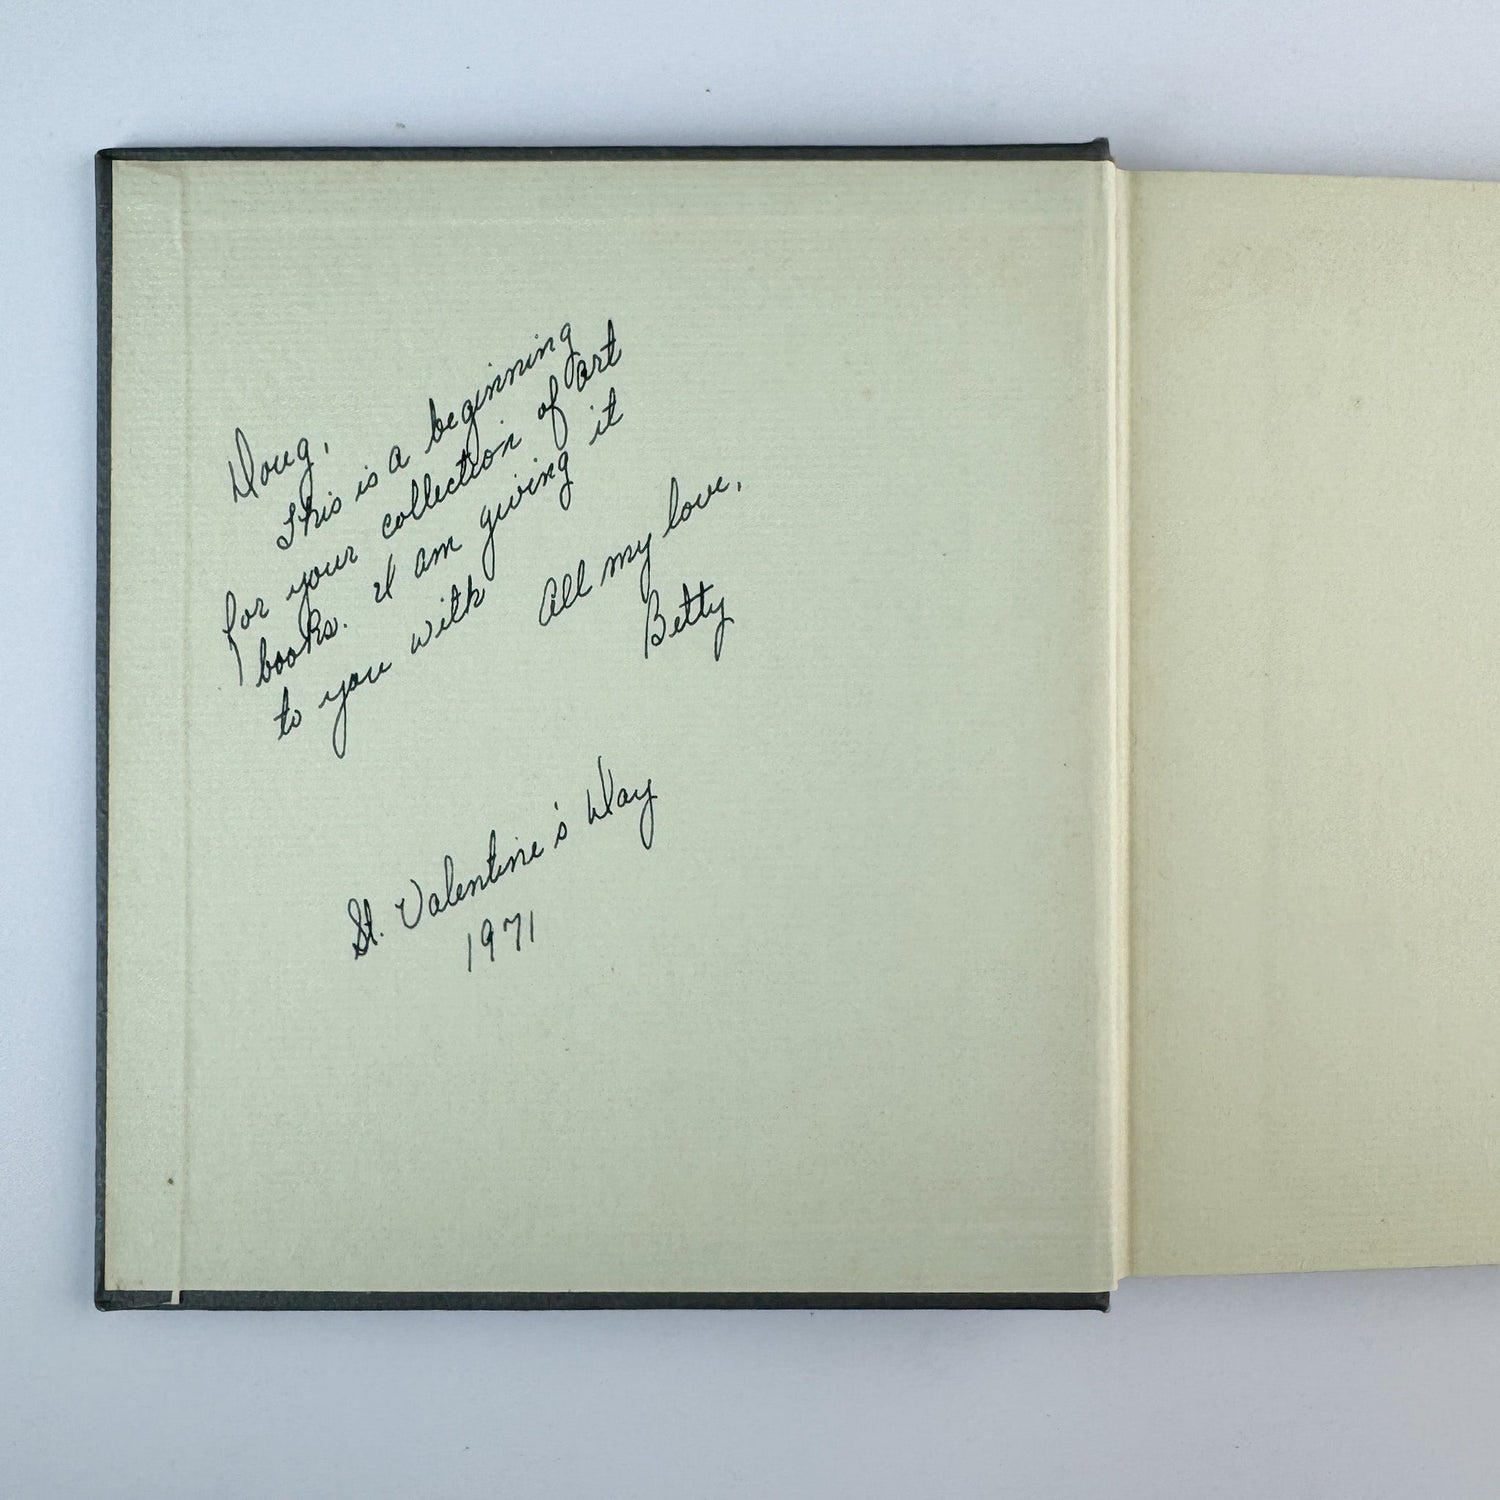 Doug,
This is a beginning
for your collection of art
books. I am giving it
to you with
All my love,
Betty
St. Valentine's Day
1971